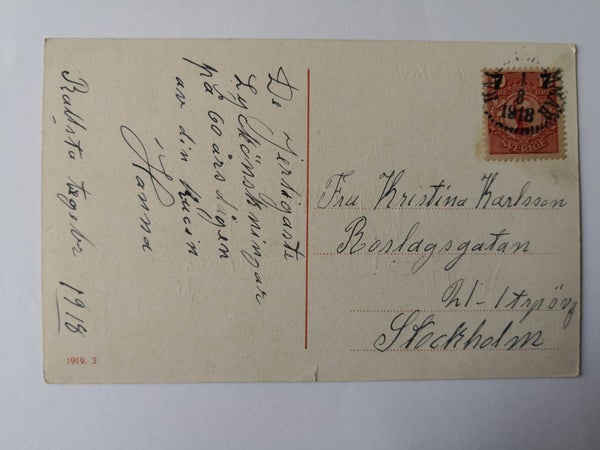 De Jertigaste
Lyckönskningar
på 60 års dagen
av din Kusin
Hanna
1918
Fru Kristina Karlsson
Roslagsgatan
21-1trp öv g
Stockholm
7 7
1
8
1918
SVERIGE
1919. 3